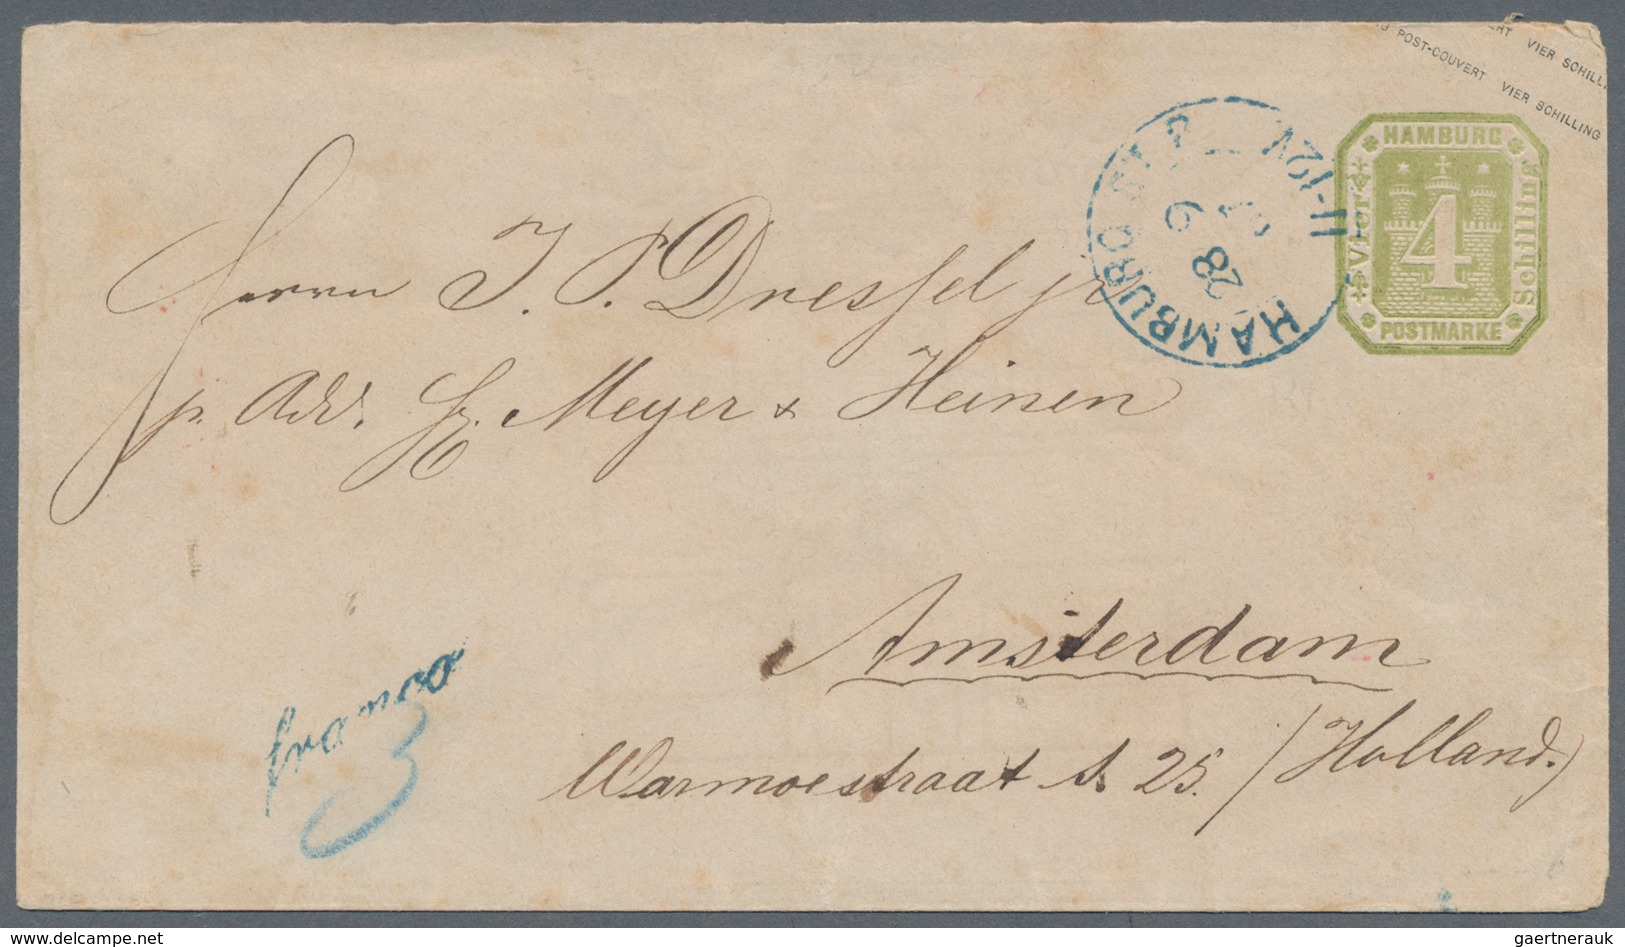 POST-COUVERT VIER SCHILLING
VIER SCHILLI
HAMBURG
Vier
4
Schilling
POSTMARKE
HAMBURG ST.P.
28
6
11-12V
Herrn J. P. Dressel jr
p. Adr. H. Meyer & Heinen
Amsterdam
Warmoestraat S. 25. (Holland.)
franco
3
delcampe.net
gaertnerauk